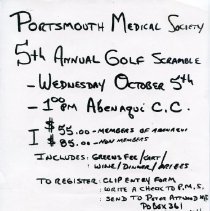 PORTSMOUTH MEDICAL SOCIETY
5th ANNUAL GOLF SCRAMBLE
- WEDNESDAY OCTOBER 5th
- 1:00 PM ABENAQUI C.C.
$55.00 - MEMBERS OF ABENAQUI
$85.00 - NON MEMBERS
INCLUDES: GREENS FEE/CART/
WINE/DINNER/
TO REGISTER: CLIP ENTRY FORM
WRITE A CHECK TO P.M.S.
SEND TO PETER ATTWOOD M.D.
PO BOX 361